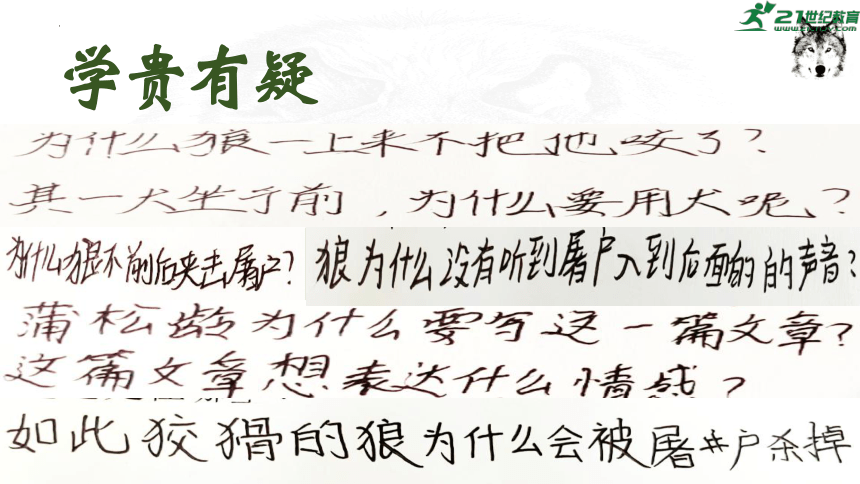 21世纪教育
www.21cnjy.com
学贵有疑
为什么狼一上来不把他咬了？
其一犬坐于前，为什么要用犬呢？
为什么狼不前后夹击屠户？
狼为什么没有听到屠户入到后面的的声音？
蒲松龄为什么要写这一篇文章？
这篇文章想表达什么情感？
如此狡猾的狼为什么会被屠户杀掉